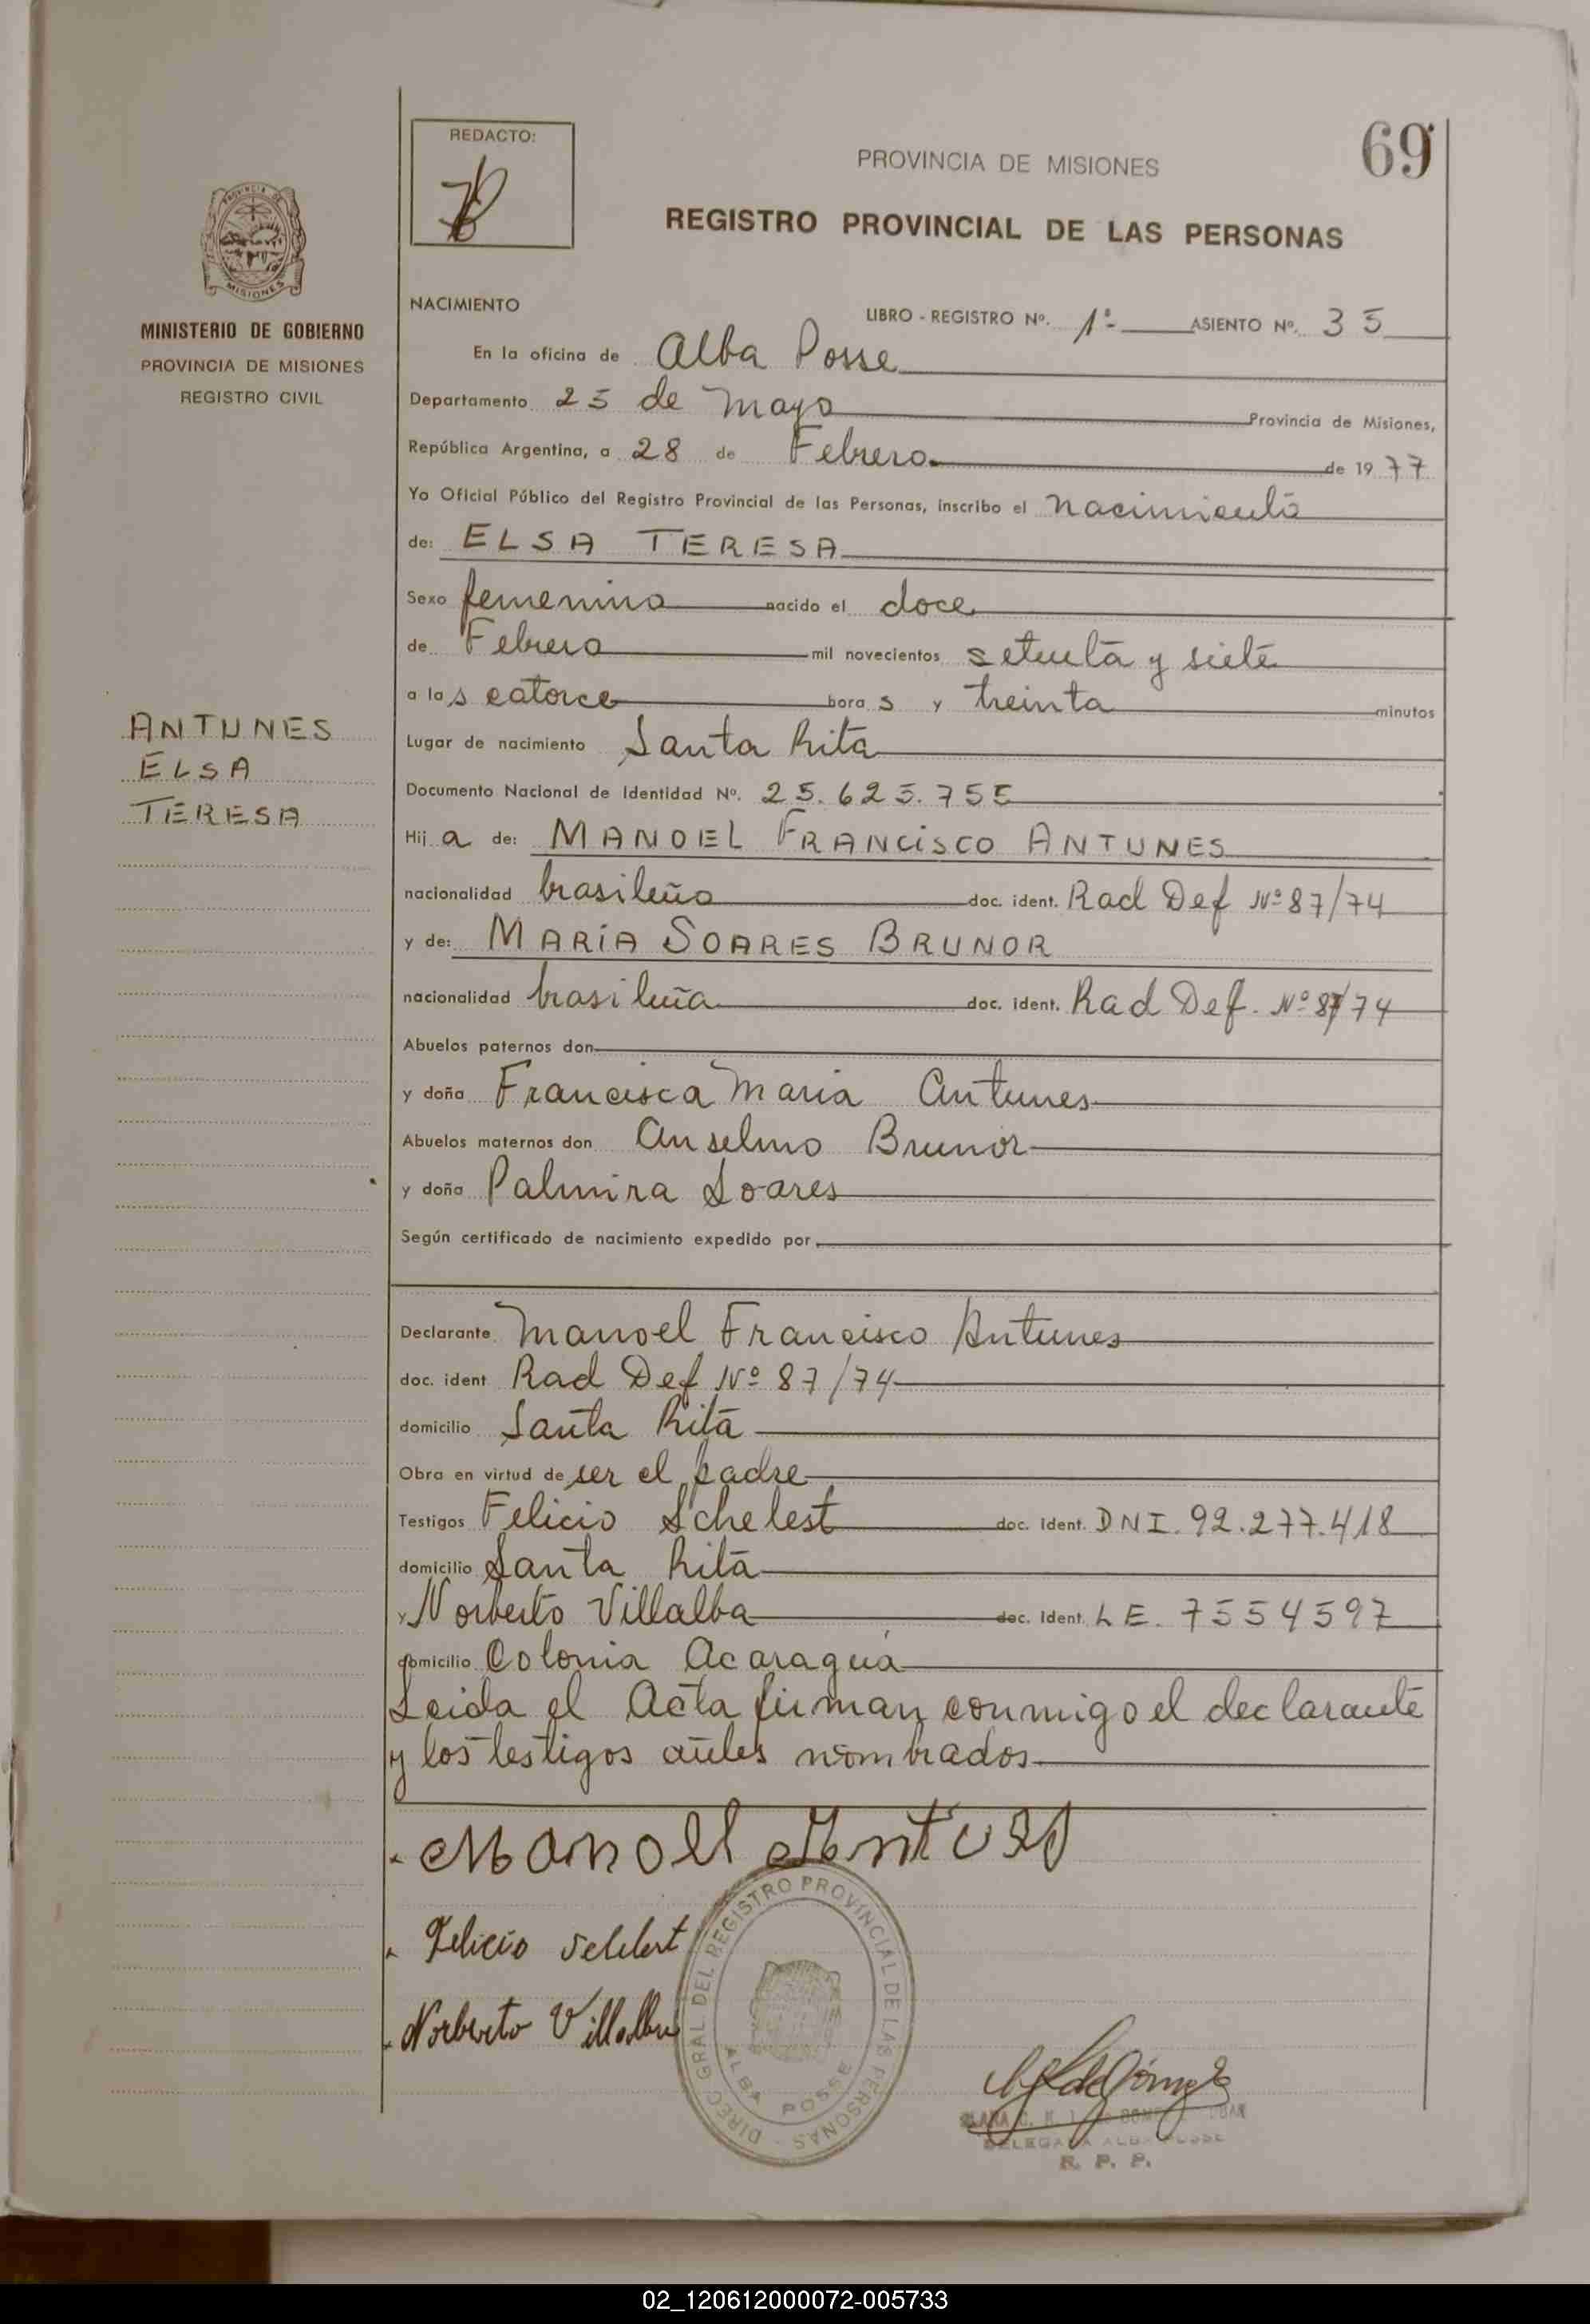 69
REDACTO:
PROVINCIA DE MISIONES
REGISTRO PROVINCIAL DE LAS PERSONAS
PROVINCIA DE
MISIONES
MINISTERIO DE GOBIERNO
PROVINCIA DE MISIONES
REGISTRO CIVIL
ANTUNES
ELSA
TERESA
NACIMIENTO LIBRO - REGISTRO Nº. 1º- ASIENTO Nº. 35
En la oficina de Alba Posse
Departamento 25 de Mayo Provincia de Misiones,
República Argentina, a 28 de Febrero de 1977
Yo Oficial Público del Registro Provincial de las Personas, inscribo el nacimiento
de: ELSA TERESA
Sexo femenino nacido el doce
de Febrero mil novecientos setenta y siete
a las catorce horas y treinta minutos
Lugar de nacimiento Santa Rita
Documento Nacional de Identidad Nº. 25.625.755
Hija de: MANOEL FRANCISCO ANTUNES
nacionalidad brasileño doc. ident. Rad Def Nº 87/74
y de: MARÍA SOARES BRUNOR
nacionalidad brasileña doc. ident. Rad Def. Nº 87/74
Abuelos paternos don
y doña Francisca Maria Antunes
Abuelos maternos don Anselmo Brunor
y doña Palmira Soares
Según certificado de nacimiento expedido por
Declarante Manoel Francisco Antunes
doc. ident Rad Def Nº 87/74
domicilio Santa Rita
Obra en virtud de ser el padre
Testigos Felicio Schelest doc. ident. DNI. 92.277.418
domicilio Santa Rita
y Norberto Villalba doc. ident. LE. 7554597
domicilio Colonia Acaraguá
Leida el Acta firman conmigo el declarante
y los testigos antes nombrados
Manoel Antunes
Felicio Schelest
Norberto Villalba
DIREC GRAL. DEL REGISTRO PROVINCIAL DE LAS PERSONAS -
ALBA POSSE
DELEGADA ALBA POSSE
R. P. P.
02_120612000072-005733